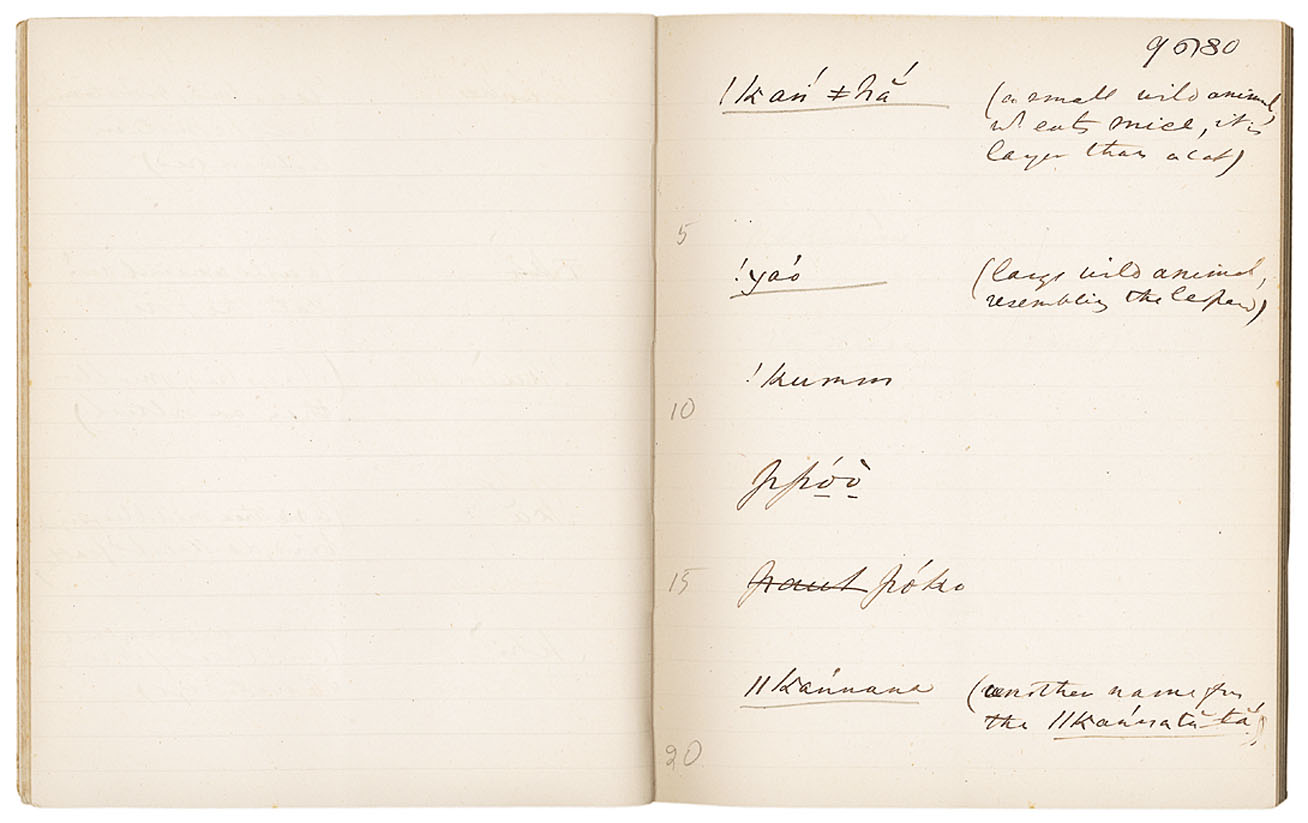 9680
ǀkań ǂhắ (a small wild animal,
wh eats mice, it is
larger than a cat)
5
!yaó (large wild animal,
resembling the leopard)
!kumm
10
þþóò
15 þóko
ǁkańnana (another name for
the ǁkańnată tă)
20